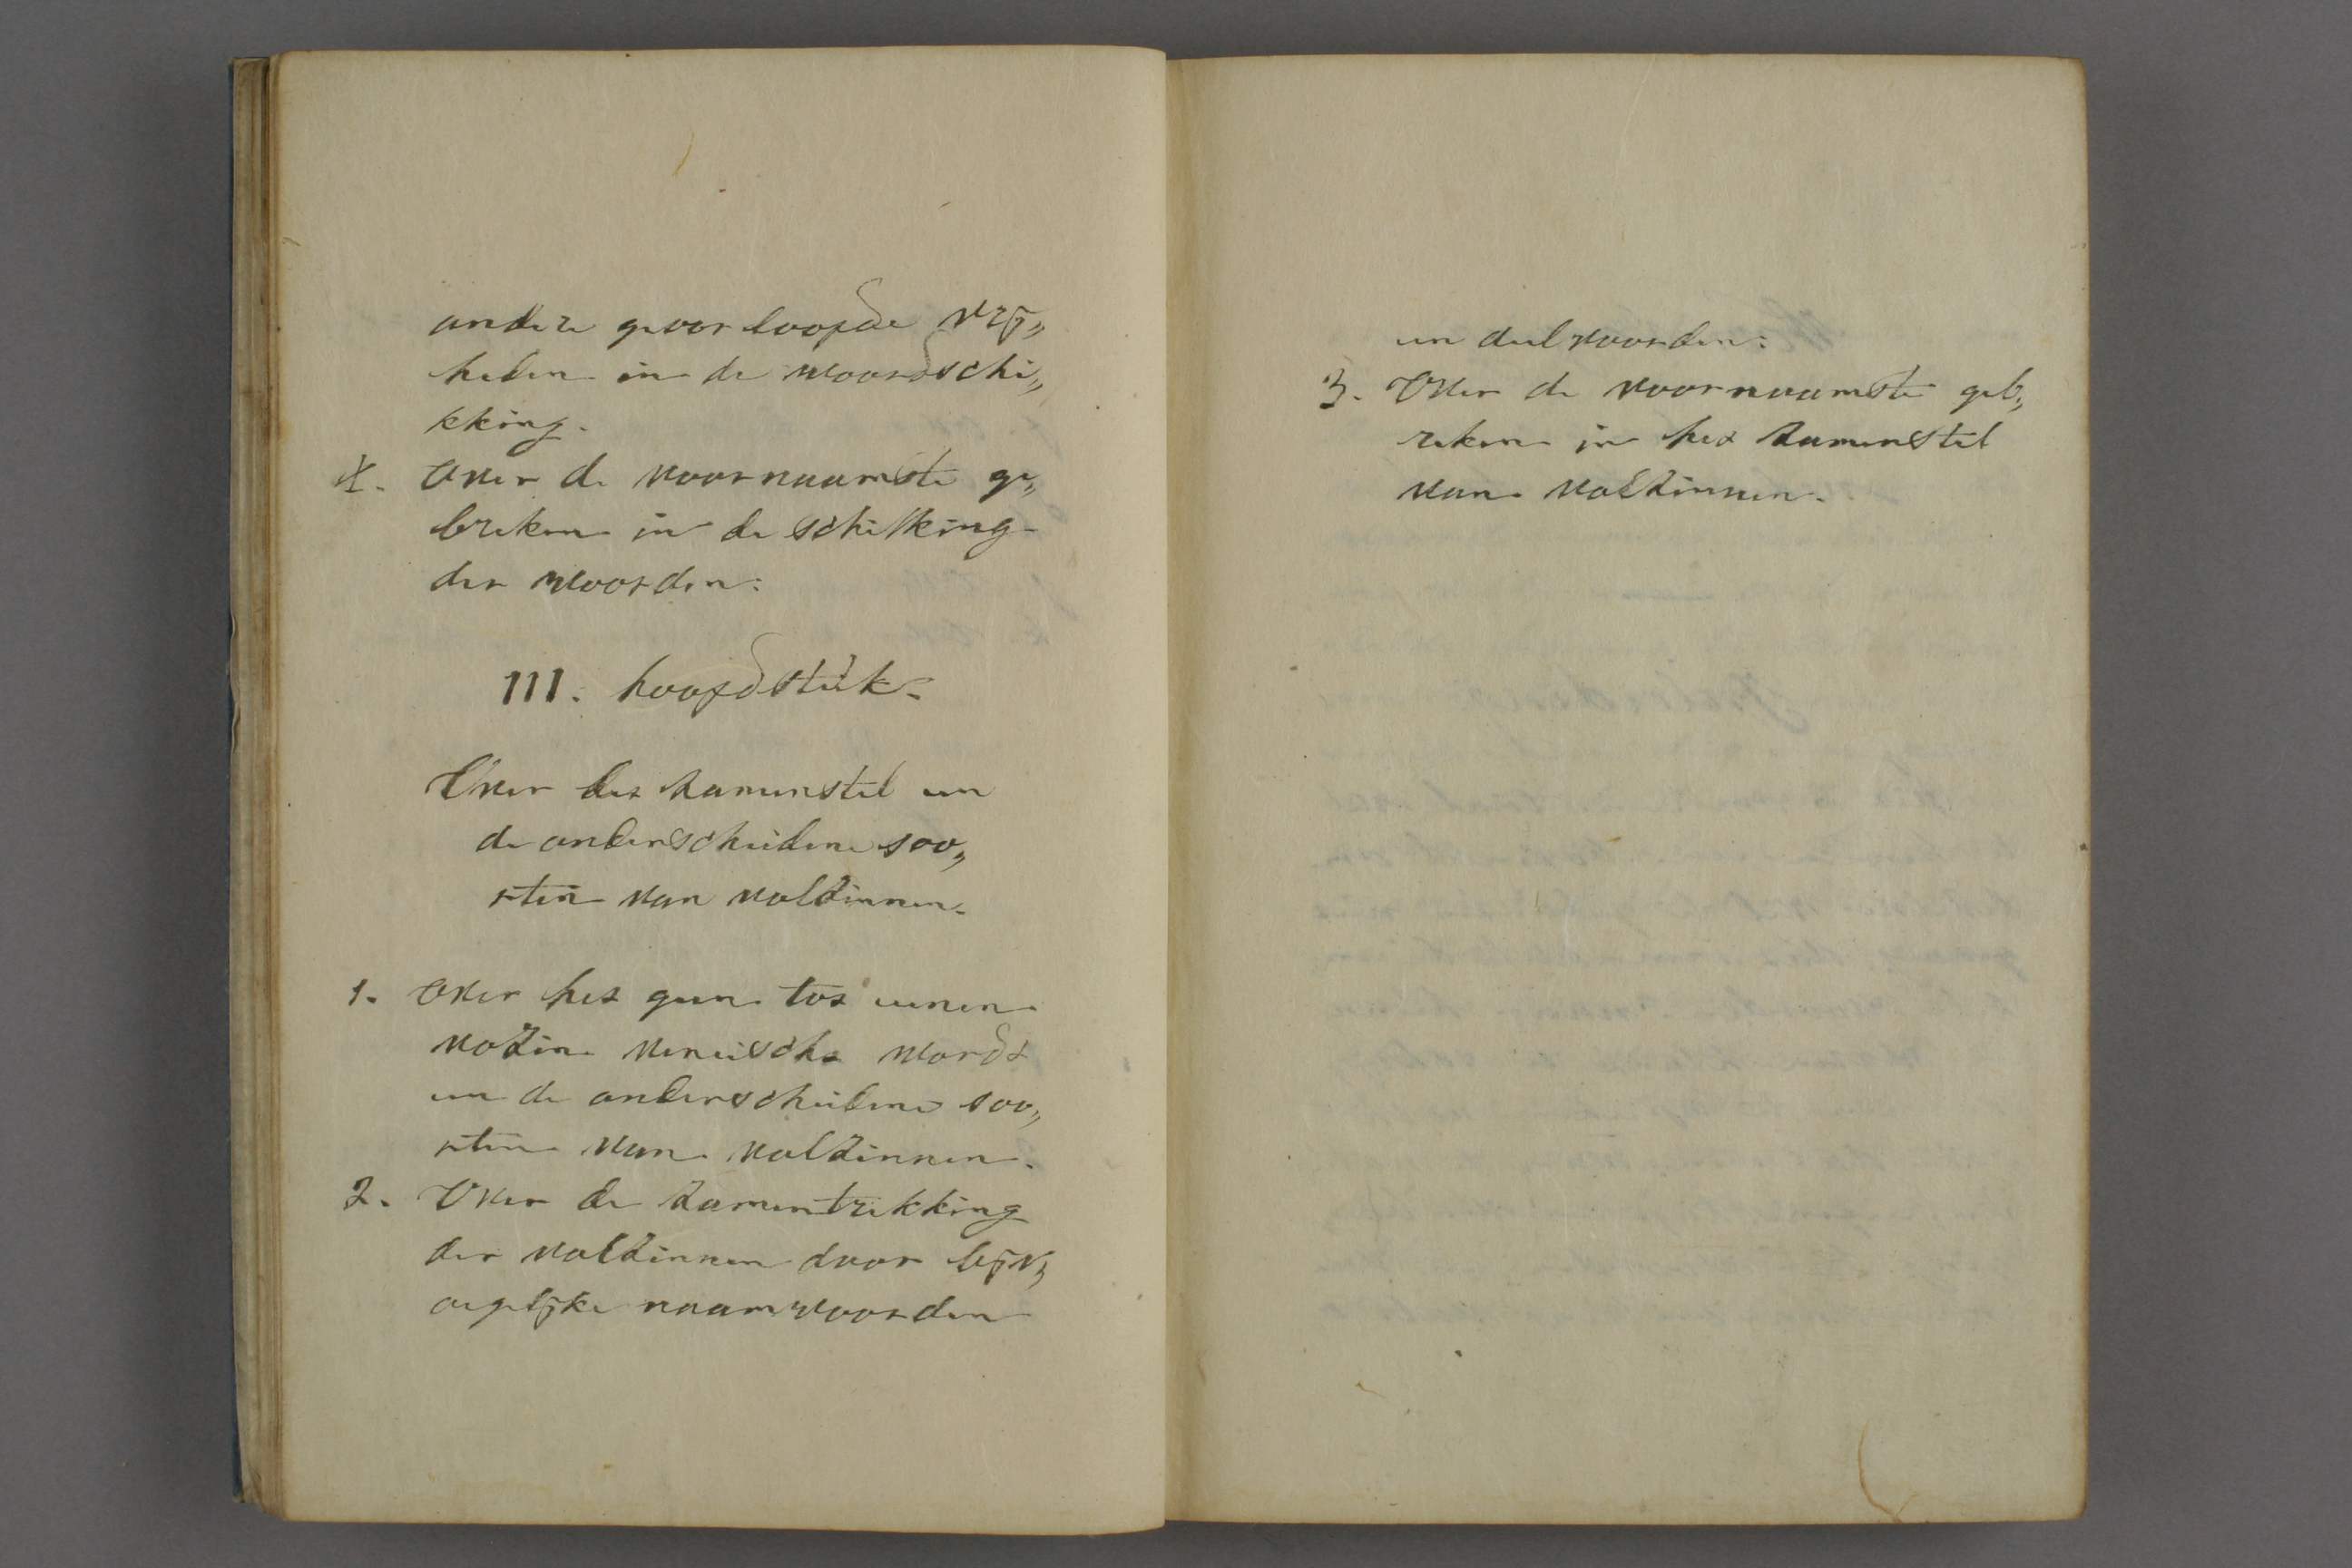 andere geoorloofde vrij„
heden in de woordschi„
kking.
4. Over de voornaamste ge„
breken in de schikking
der woorden.
III. hoofdstuk.
Over het zamenstel en
de onderscheidene soo„
rten van volzinnen.
1. Over het geen tot eenen
vozin vereischt wordt
en de onderscheidene soo„
rten van volzinnen.
2. Over de zamentrekking
der volzinnen door bijv„
oegelijke naamwoorden
en deelwoorden.
3. Over de voornaamste geb„
reken in het zamenstel
van volzinnen.